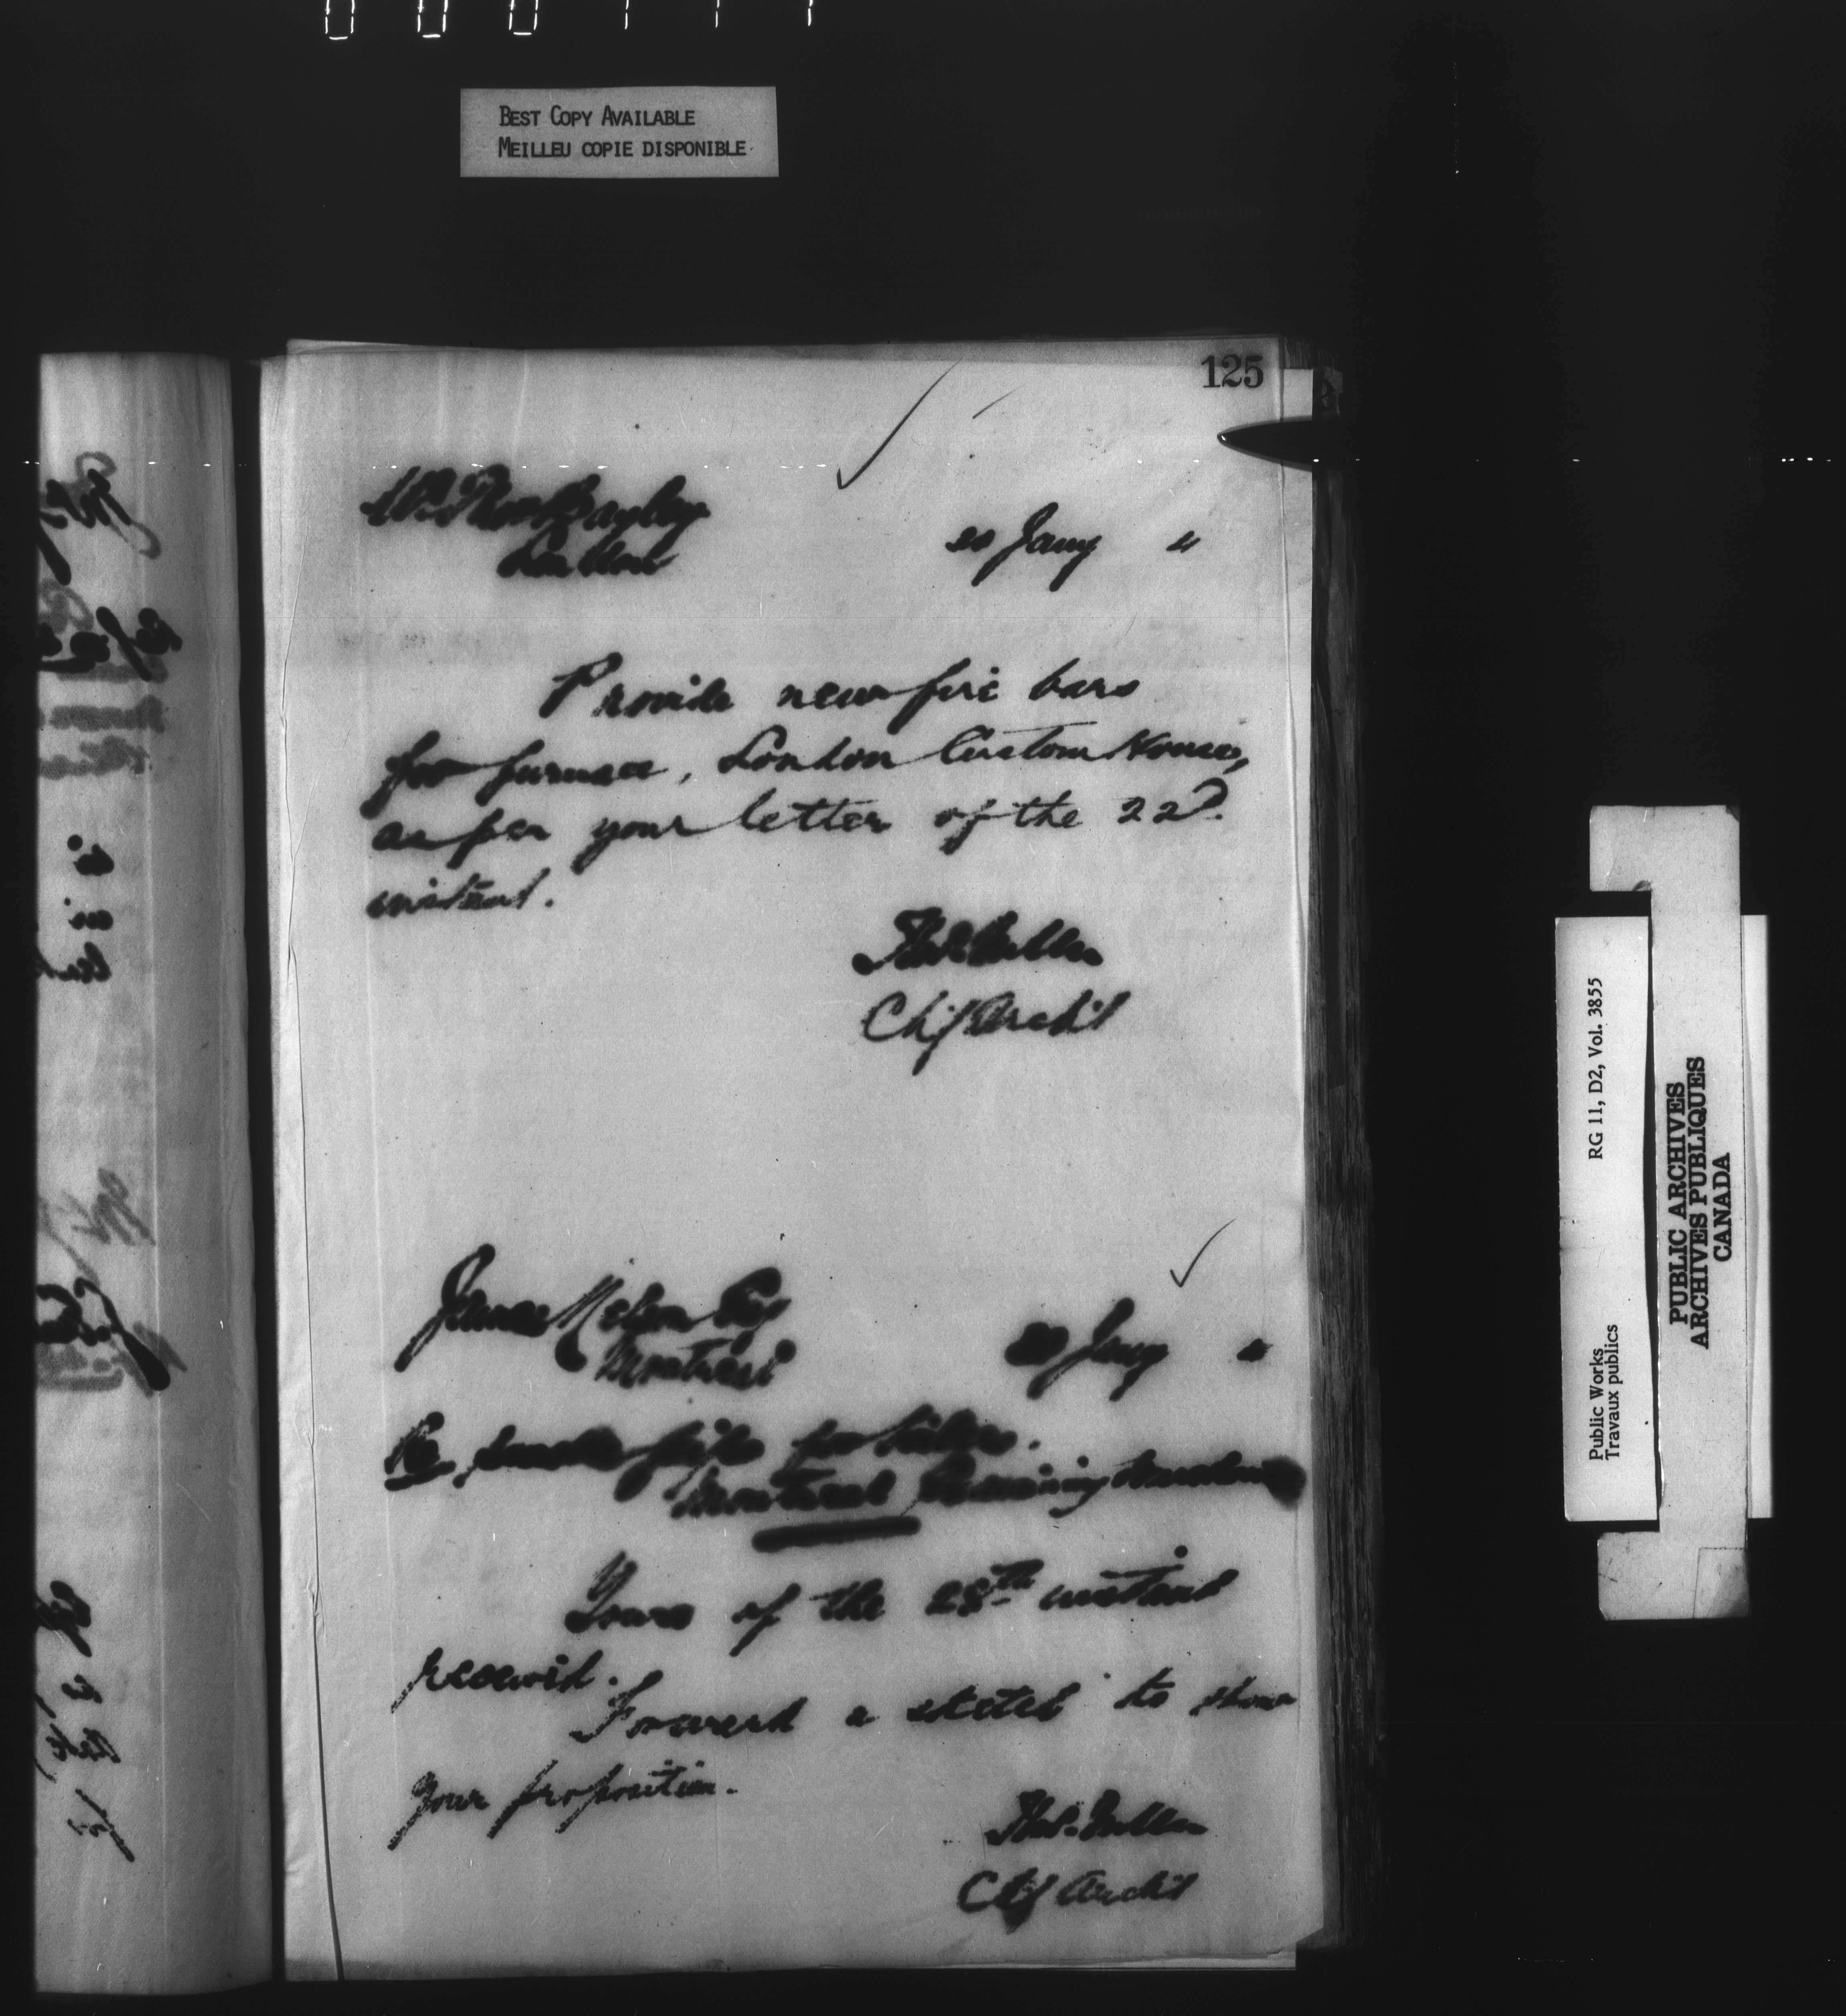 BEST COPY AVAILABLE
MEILLEU COPIE DISPONIBLE
125
London
30 Jany "
Provide new fire bars
for furnace, London Custom House,
as per your letter of the 22d.
instant.
Thos. Fuller
Chf Archt
James Nelson Esq
Montreal
30 Jany "
Re smoke pipe for boilers.
Montreal Examining Warehouse
Yours of the 28th instant
received.
Forward a sketch to show
your proposition.
Thos. Fuller
Chf Archt
Public Works RG 11, D2, Vol. 3855
Travaux publics
PUBLIC ARCHIVES
ARCHIVES PUBLIQUES
CANADA